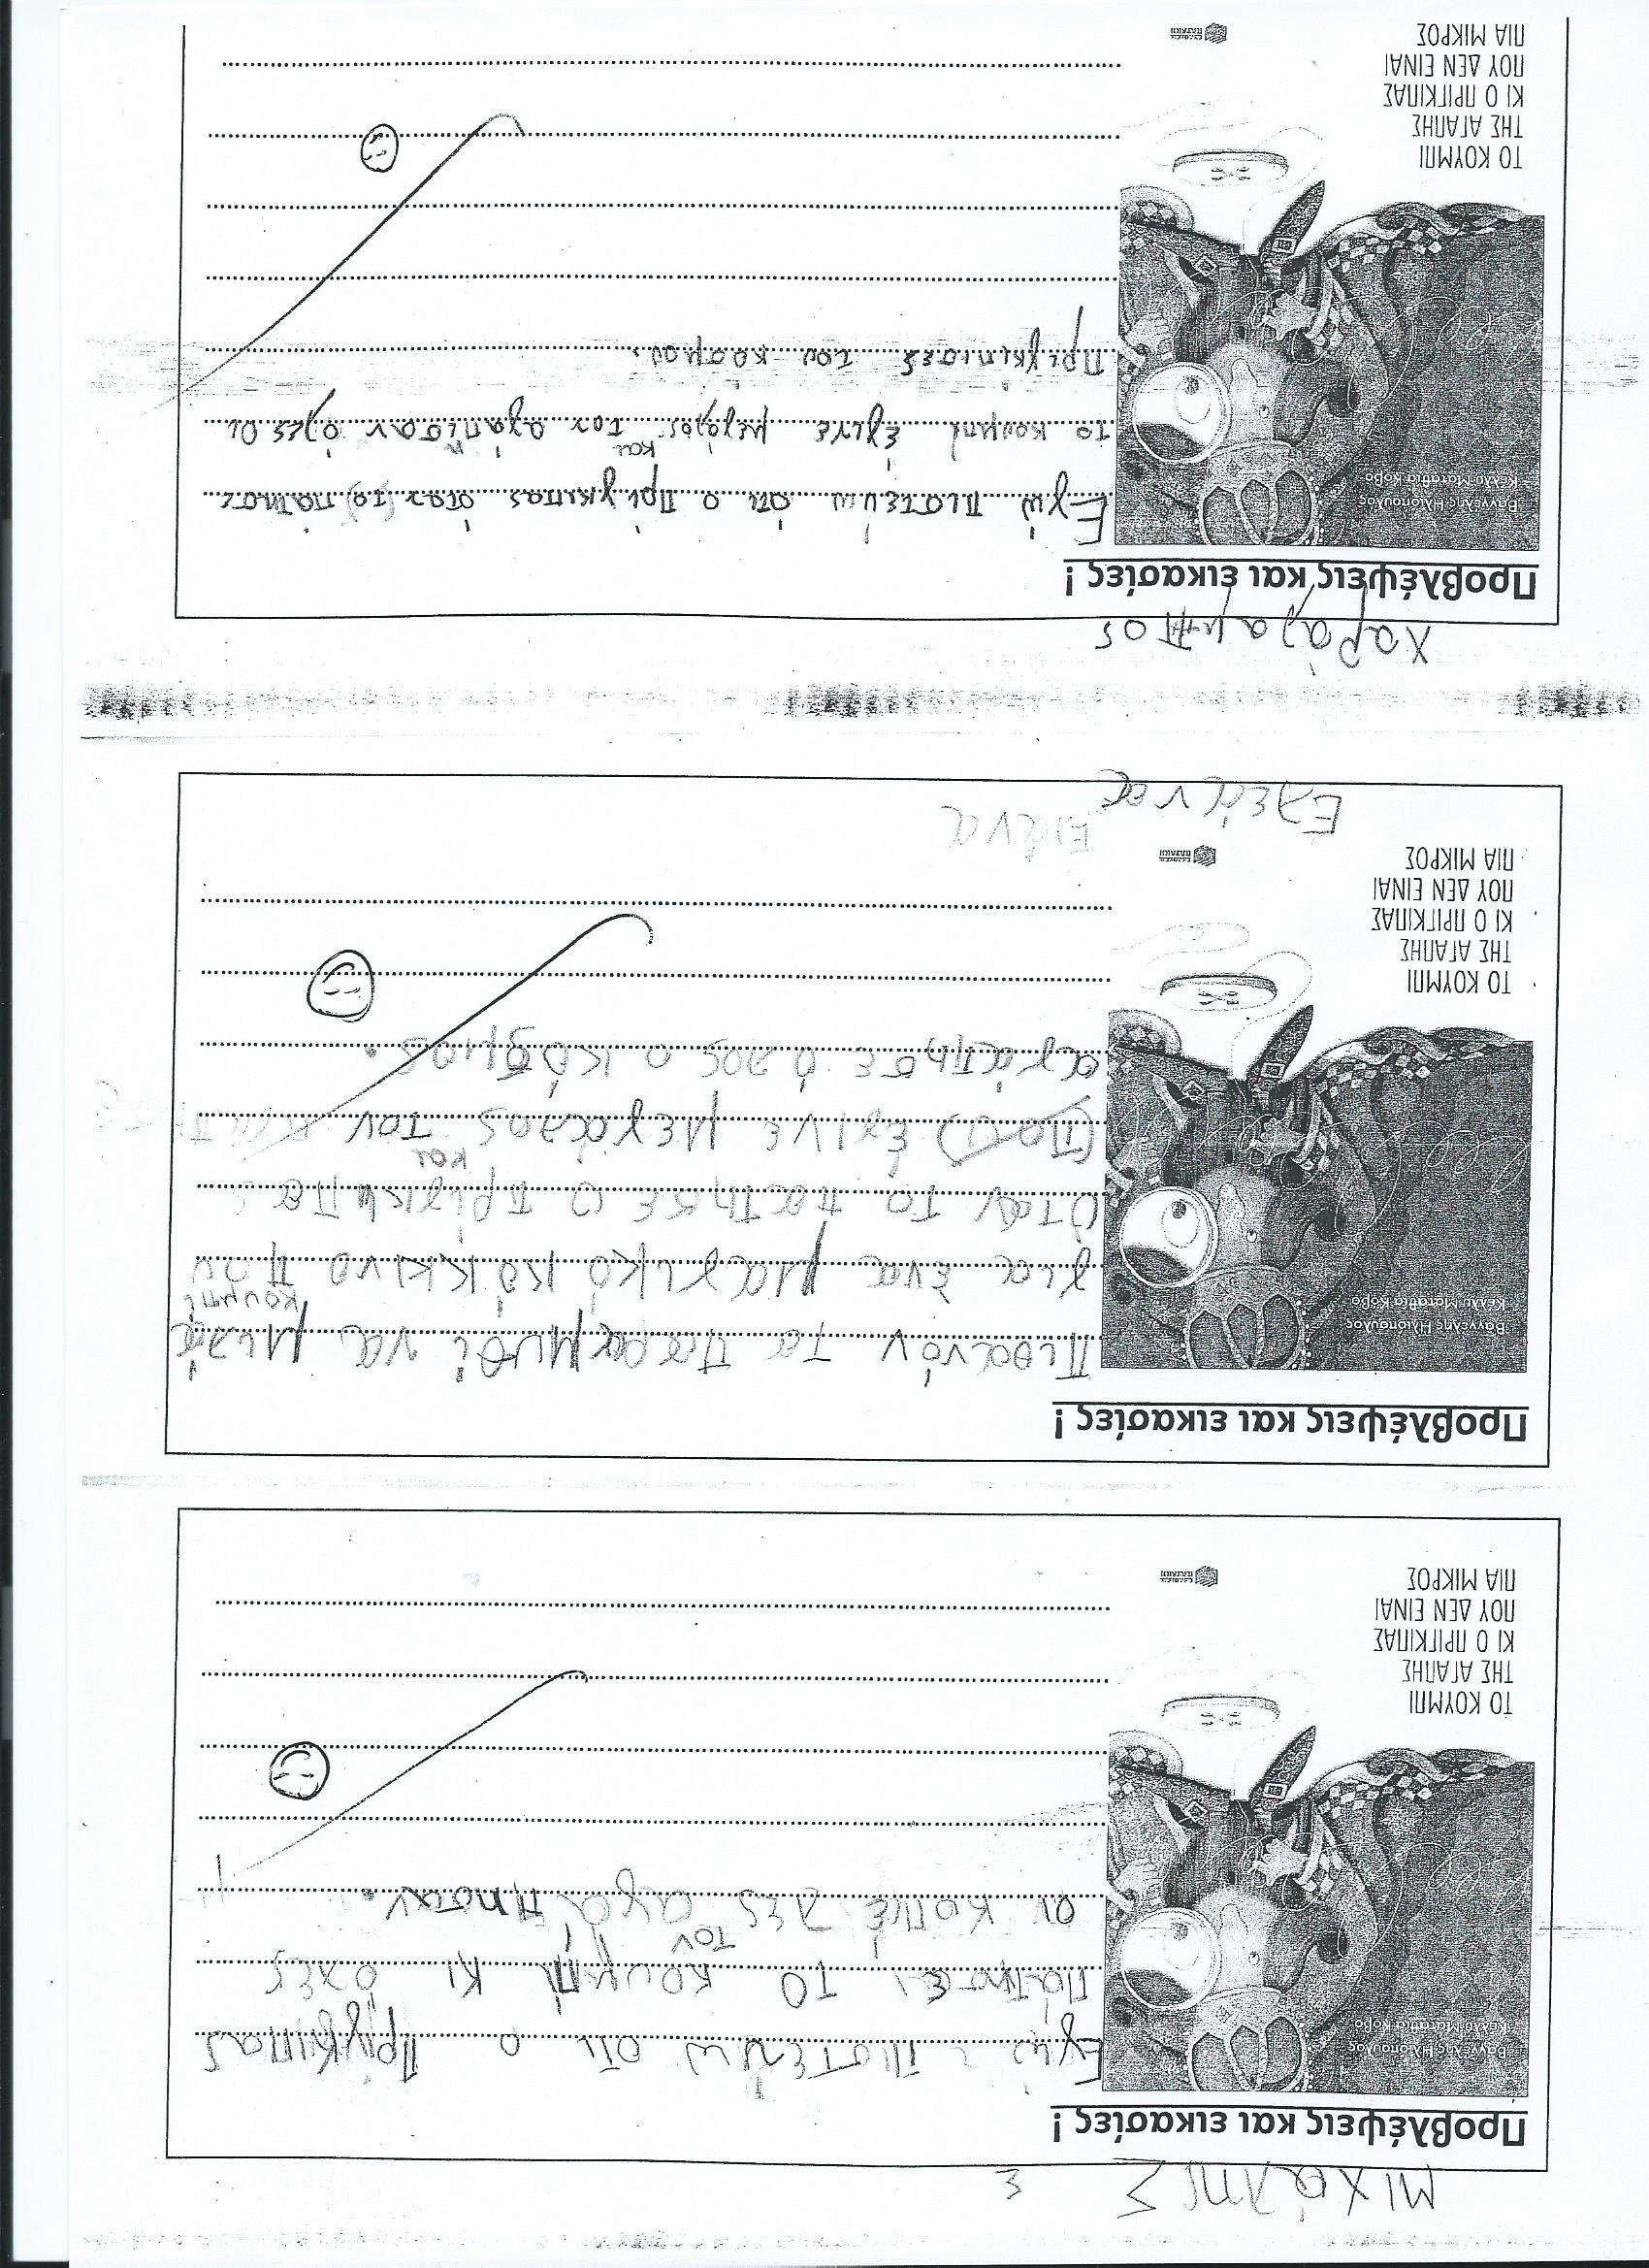 Μιχάλης Σ
Σ
Προβλέψεις και εικασίες!
Βαγγέλης Ηλιόπουλος
Κέλλυ Ματαθία Κόβο
ΤΟ ΚΟΥΜΠΙ
ΤΗΣ ΑΓΑΠΗΣ
ΚΙ Ο ΠΡΙΓΚΙΠΑΣ
ΠΟΥ ΔΕΝ ΕΙΝΑΙ
ΠΙΑ ΜΙΚΡΟΣ
Εγώ πιστεύω οτι ο πρίγκιπας
πάτησει το κουμπί κι όλες
τον
οι κοπέλες αγάπησαν.
Προβλέψεις και εικασίες!
Βαγγέλης Ηλιόπουλος
Κέλλυ Ματαθία Κόβο
ΤΟ ΚΟΥΜΠΙ
ΤΗΣ ΑΓΑΠΗΣ
ΚΙ Ο ΠΡΙΓΚΙΠΑΣ
ΠΟΥ ΔΕΝ ΕΙΝΑΙ
ΠΙΑ ΜΙΚΡΟΣ
Πιθανόν τα παραμυθί να μιλά
κουμπί
για ένα μαγικό κόκκινο που
όταν το πατησε ο πρίγκιπας
και
(που) έγινε μεγάλος τον
αγάπησε όλος ο κόσμος.
Ελεάνα
Χαράλαμπος
Προβλέψεις και εικασίες!
Βαγγέλης Ηλιόπουλος
Κέλλυ Ματαθία Κόβο
ΤΟ ΚΟΥΜΠΙ
ΤΗΣ ΑΓΑΠΗΣ
ΚΙ Ο ΠΡΙΓΚΙΠΑΣ
ΠΟΥ ΔΕΝ ΕΙΝΑΙ
ΠΙΑ ΜΙΚΡΟΣ
Εγώ πιστεύω ότι ο πρίγκιπας όταν (το) πάτησε
το κουμπί έγινε μεγάλος τον αγάπισαν όλες οι
και η
πριγκίπισες του κόσμου.